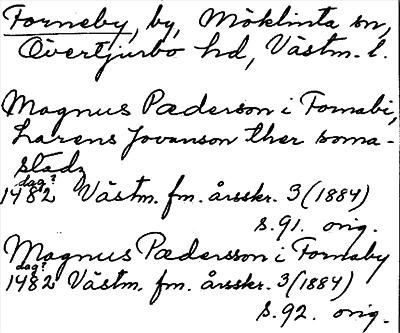 Forneby, by, Möklinta sn,
Övertjurbo hd, Västm. l.
Magnus Pæderson i Fornabi,
Larens Jovanson ther soma-
stadz
dag?
1482 Västm. fm. årsskr. 3 (1884)
s. 91. orig.
Magnus Pædersson i Fornaby
dag?
1482 Västm. fm. årsskr. 3 (1884)
s. 92. orig.